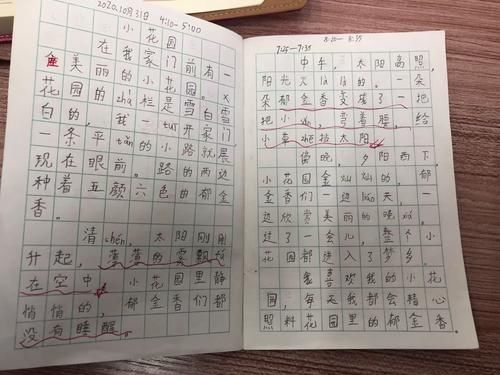 2020.10月31日 4:10-5:00
小花园
在我家门前有一
座美丽的小花园。
花园的zhà栏是雪白雪
白的，我一tuī开家门
一条平tǎn的小路就展
现在眼前。路的两边
种着五颜六色的郁金
香。
清chén，太阳刚刚
升起，薄薄的雾飘
在空中，小花园里静
悄悄的，郁金香们都
没有睡醒。
7:25-7:35
8:20-8:35
中午，太阳高照，
阳光火là là的。一朵
朵郁金香变成了一把
把小，弯着腰，给
小草zhē挡太阳。
傍晚，夕阳西下，
小花园金灿灿的，郁
金香们一边liáo天，一
边欣赏美丽的晚xiá。
过了一会儿，整个小
花园都进入了梦乡。
我喜欢我的小花
园，每天我都会精心
照料花园里的郁金香